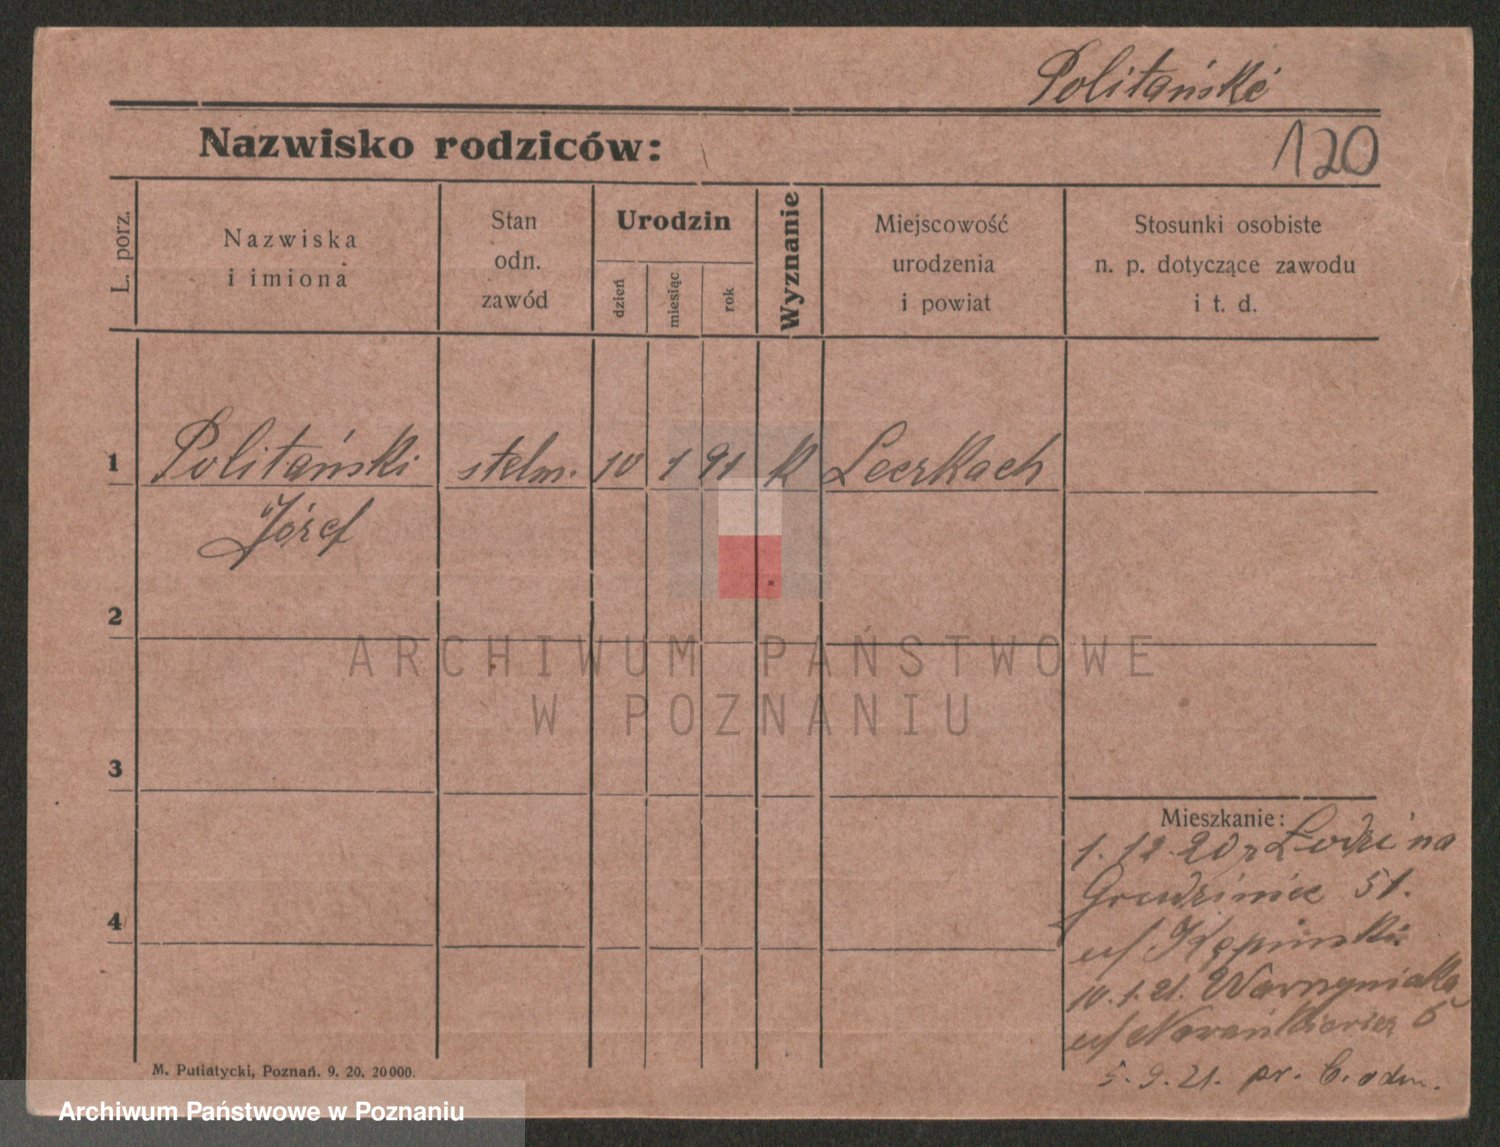 Politański
120
Nazwisko rodziców:
L. porz.
Nazwiska
i imiona
Stan
odn.
zawód
Urodzin
dzień
miesiąc
rok
Wyznanie
Miejscowość
urodzenia
i powiat
Stosunki osobiste
n. p. dotyczące zawodu
i t. d.
1 Politański stelm. 10 1 91 K
Józef
2
ARCHIWUM PAŃSTWOWE
W POZNANIU
3
Mieszkanie:
1.12.20 z Łodzi na
Grudziniec 51.
4
u/ Kępiński
10.1.21.
u/
5.9.21. pr. b. odm.
M. Putiatycki, Poznań. 9. 20. 20000.
Archiwum Państwowe w Poznaniu